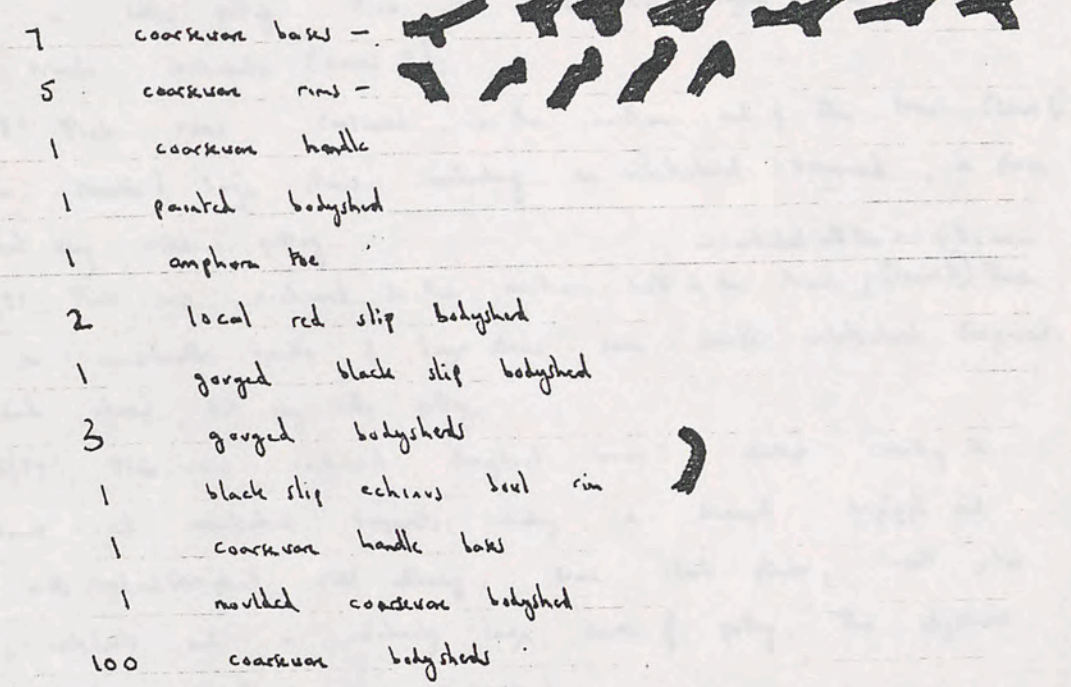 7 coarseware bases -
5 coarseware rims -
1 coarseware handle
1 painted bodysherd
1 amphora toe
2 local red slip bodysherd
1 gorged black slip bodysherd
3 gorged bodysherds
1 black slip echinus bowl rim
1 coarseware handle bases
1 moulded coarseware bodysherd
100 coarseware bodysherds